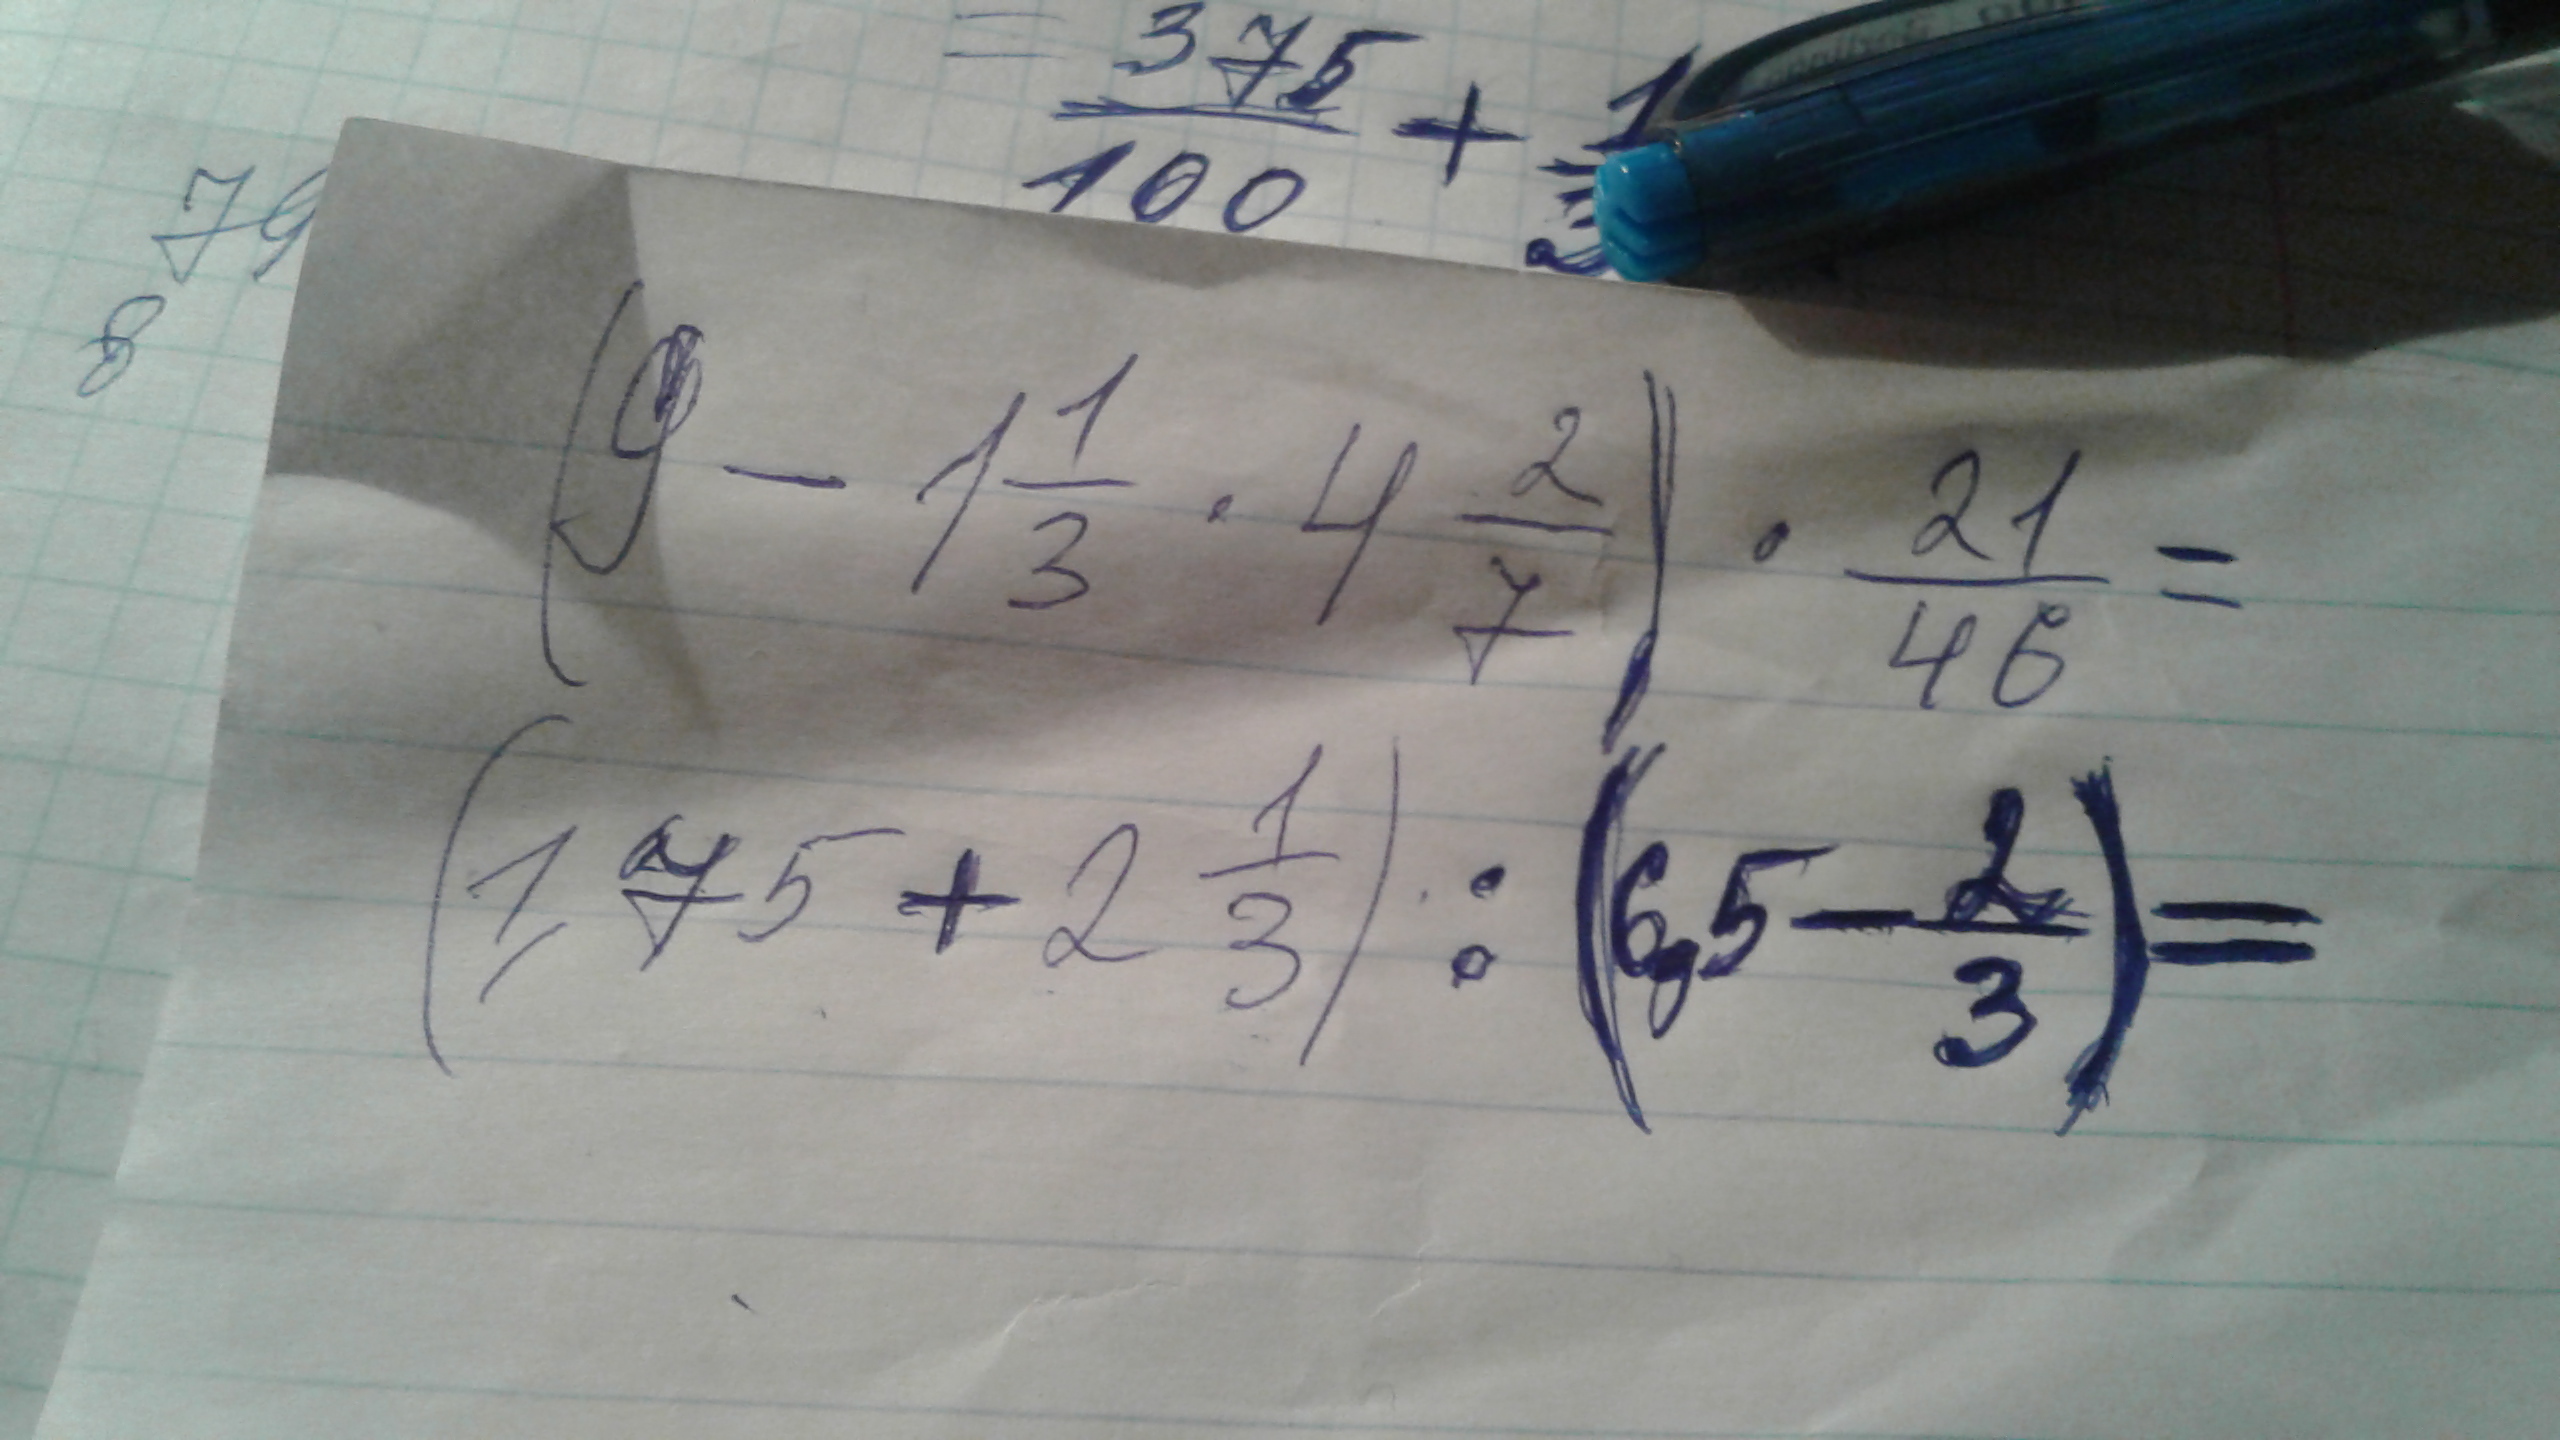 = 375/100 + 1/2
79
8
(9 - 1 1/3 · 4 2/7) · 21/46 =
(1,75 + 2 1/3) : (6,5 - 2/3) =